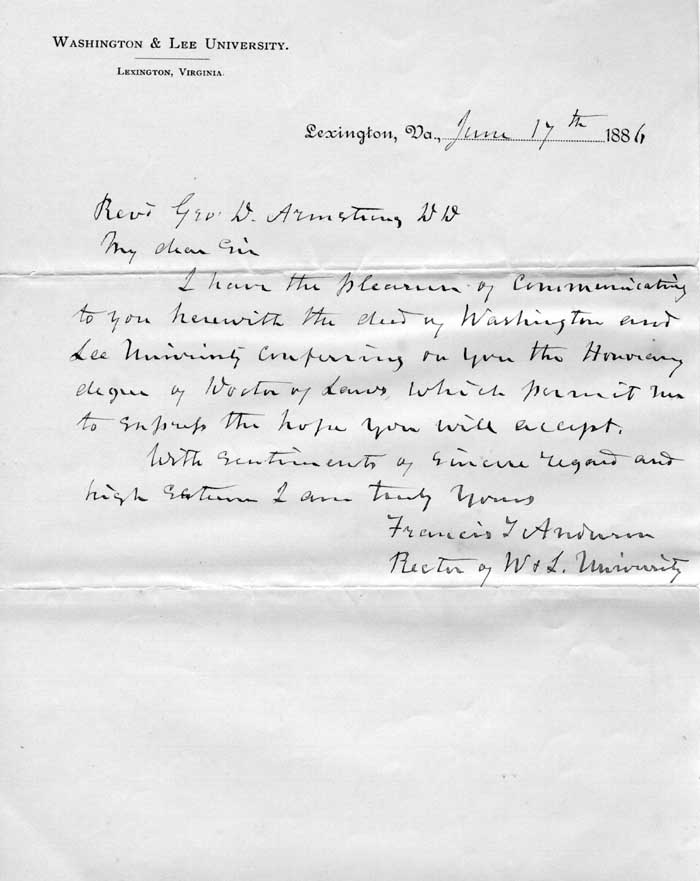 WASHINGTON & LEE UNIVERSITY.
LEXINGTON, VIRGINIA.
Lexington, Va., June 17th 1886
Revd Geo. D. Armstrong DD
My dear Sir
I have the pleasure of Communicating
to you herewith the deed of Washington and
Lee University Conferring on you the Honorary
degree of Doctor of Laws, which permit me
to express the hope you will accept.
With sentiments of sincere regard and
high Esteem I am truly yours
Francis T Anderson
Rector of W & L. University